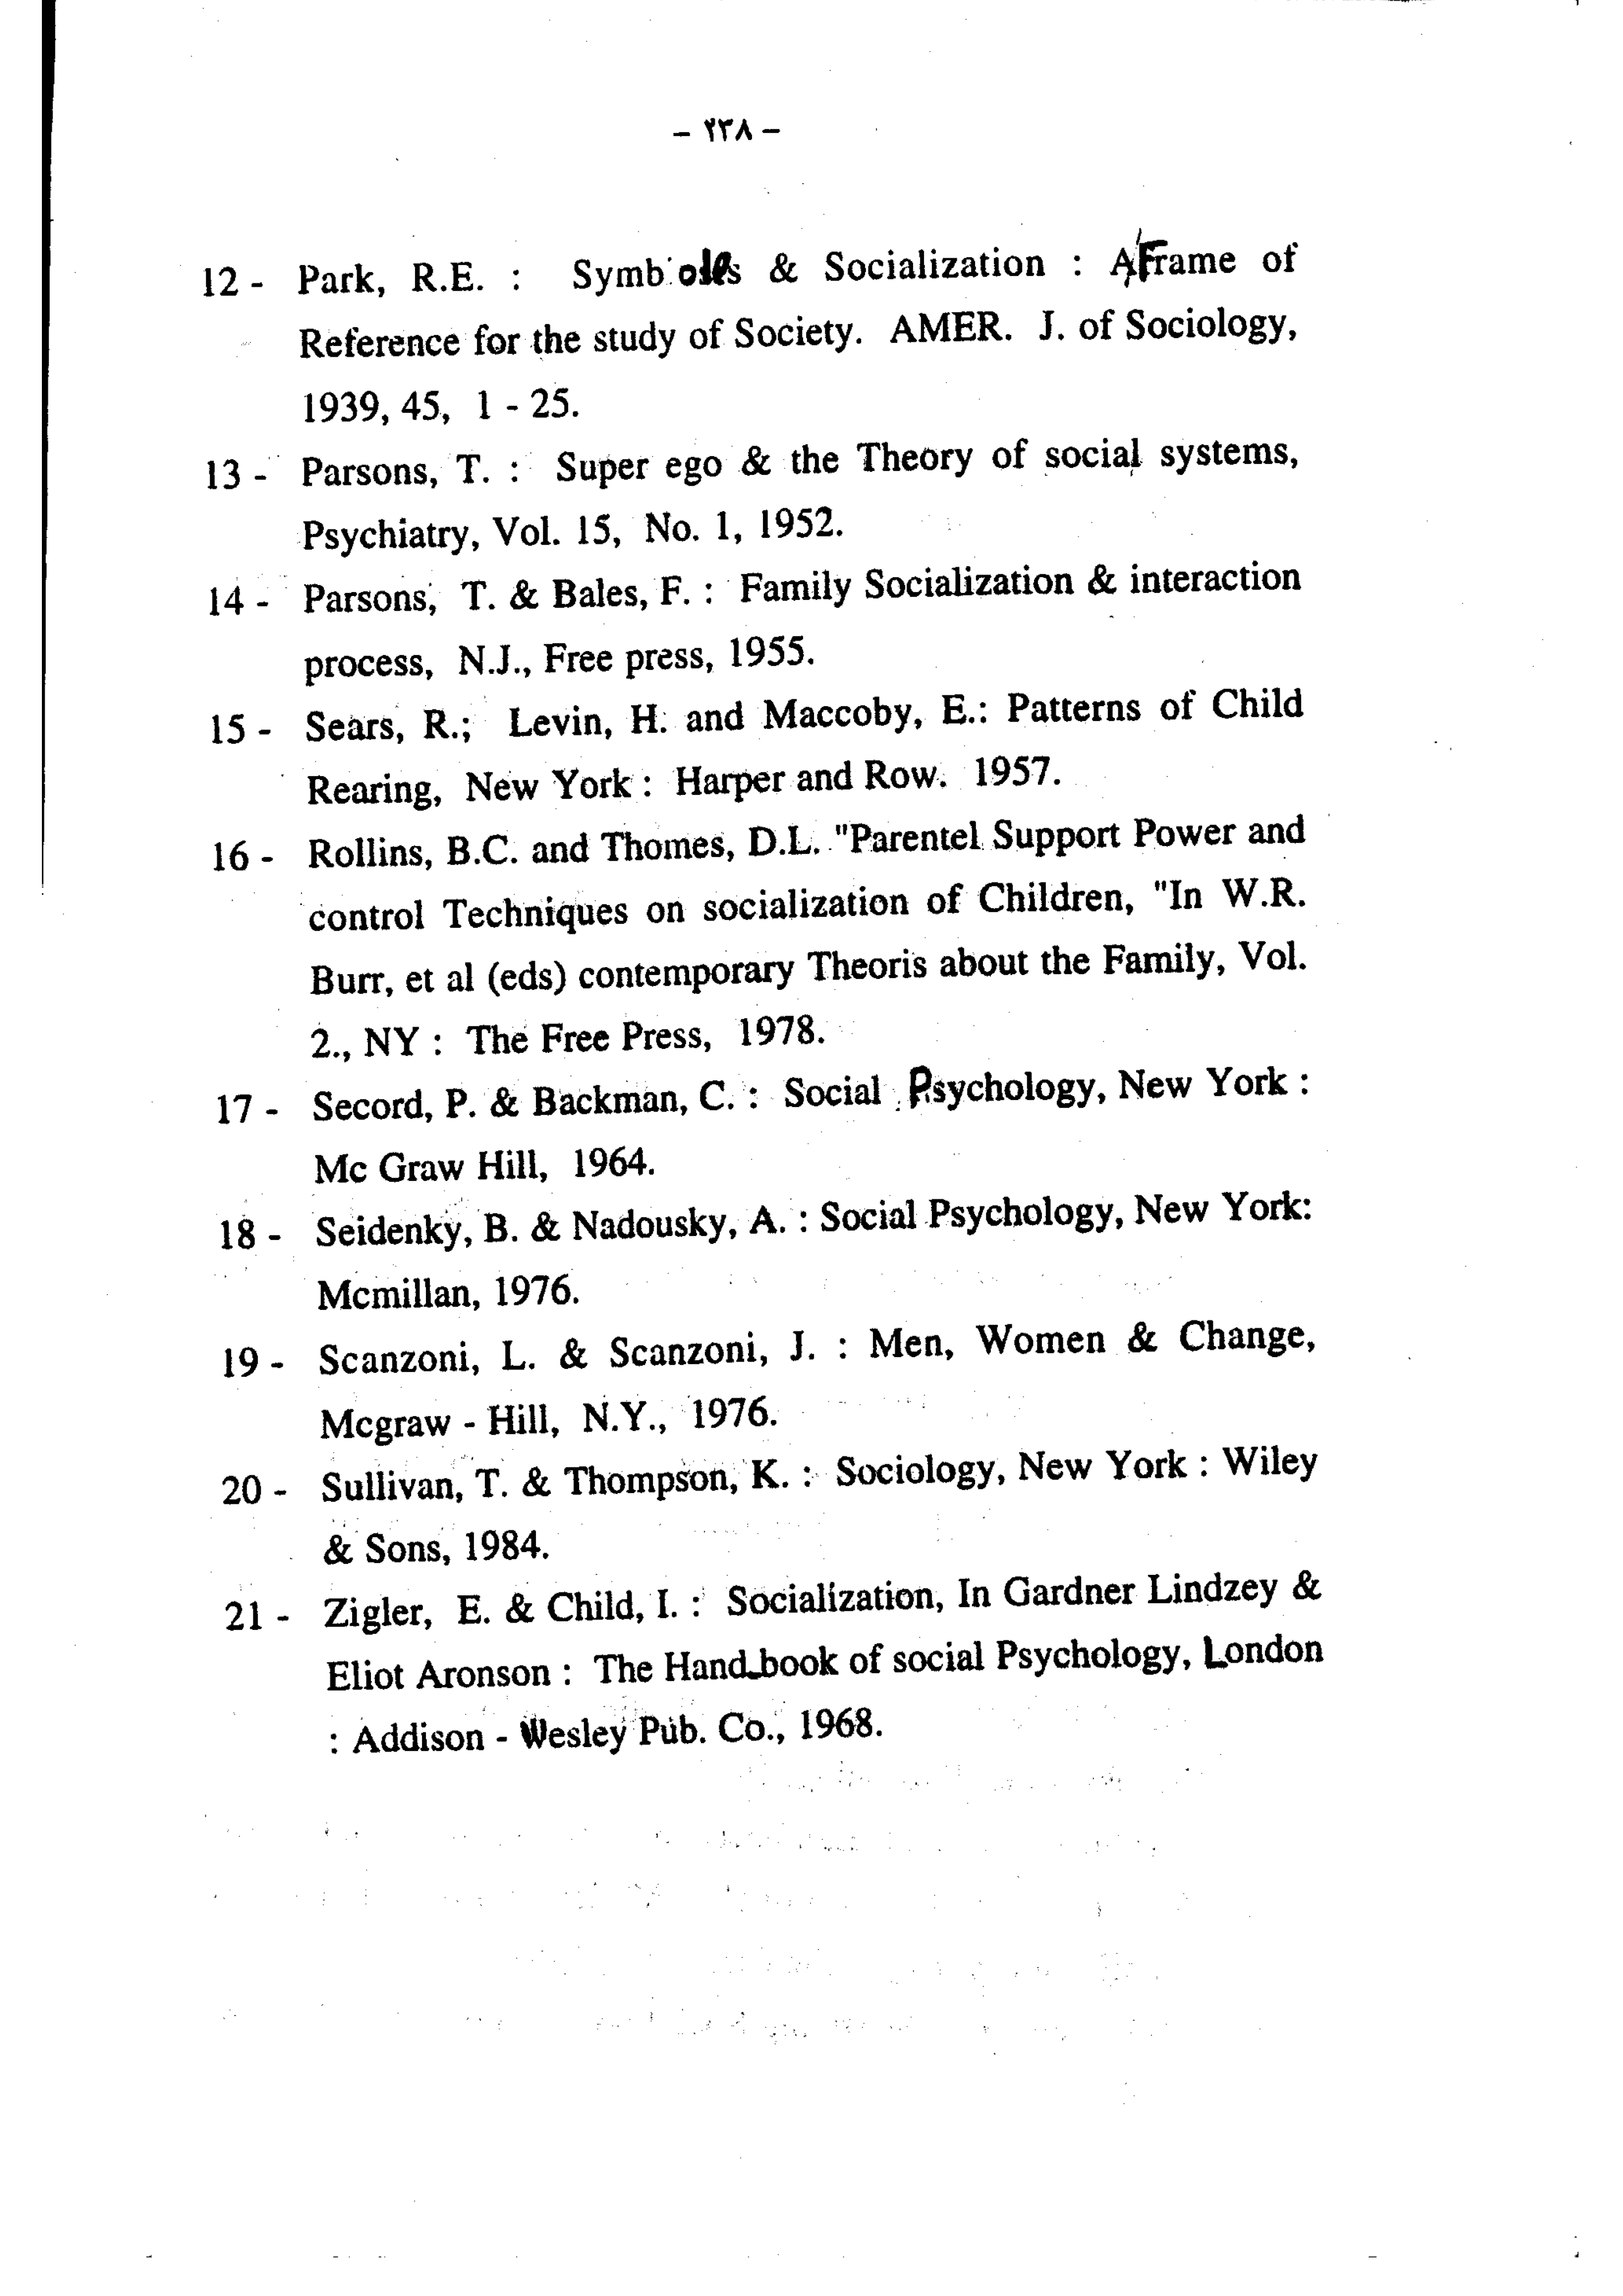 - ٢٣٨ -
12 - Park, R.E. : Symbols & Socialization : A Frame of
Reference for the study of Society. AMER. J. of Sociology,
1939, 45, 1 - 25.
13 - Parsons, T. : Super ego & the Theory of social systems,
Psychiatry, Vol. 15, No. 1, 1952.
14 - Parsons, T. & Bales, F. : Family Socialization & interaction
process, N.J., Free press, 1955.
15 - Sears, R.; Levin, H. and Maccoby, E.: Patterns of Child
Rearing, New York : Harper and Row. 1957.
16 - Rollins, B.C. and Thomes, D.L. "Parentel Support Power and
control Techniques on socialization of Children, "In W.R.
Burr, et al (eds) contemporary Theoris about the Family, Vol.
2., NY : The Free Press, 1978.
17 - Secord, P. & Backman, C. : Social Psychology, New York :
Mc Graw Hill, 1964.
18 - Seidenky, B. & Nadousky, A. : Social Psychology, New York:
Mcmillan, 1976.
19 - Scanzoni, L. & Scanzoni, J. : Men, Women & Change,
Mcgraw - Hill, N.Y., 1976.
20 - Sullivan, T. & Thompson, K. : Sociology, New York : Wiley
& Sons, 1984.
21 - Zigler, E. & Child, I. : Socialization, In Gardner Lindzey &
Eliot Aronson : The Hand-book of social Psychology, London
: Addison - Wesley Pub. Co., 1968.